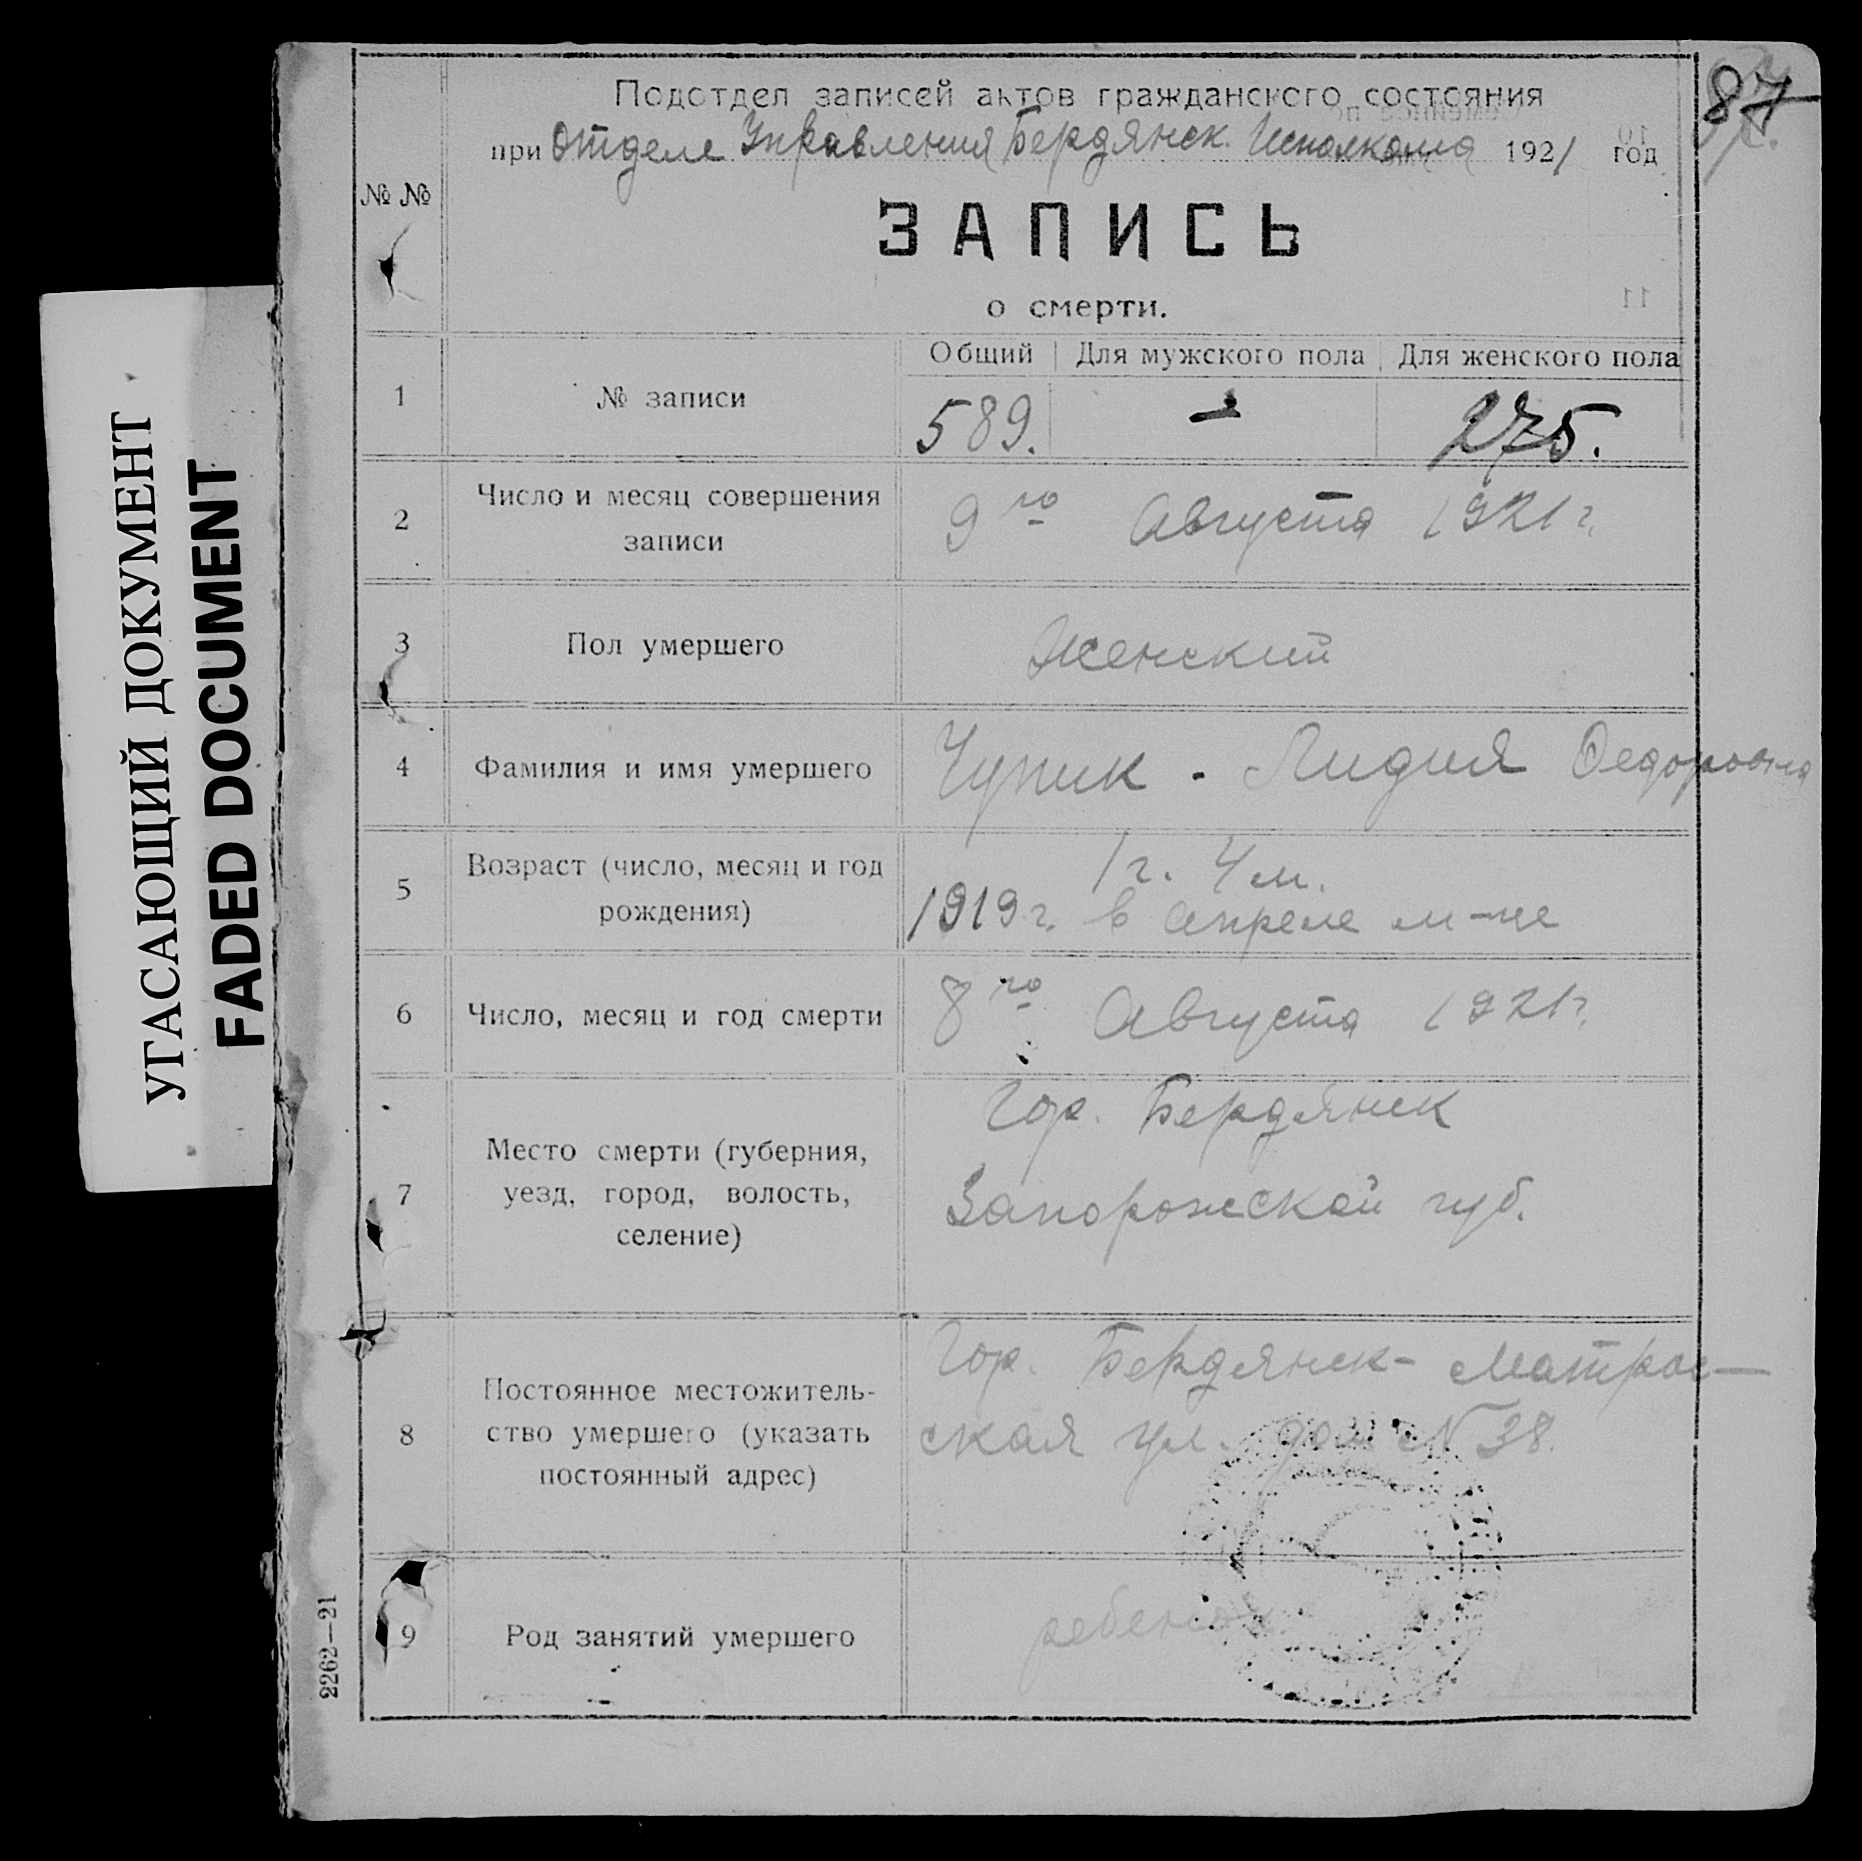 87
Подотдел записей актов гражданского состояния
при Отделе Управления Бердянск. Исполкома 1921 год
№ №
ЗАПИСЬ
о смерти.
Общий Для мужского пола Для женского пола
1 № записи 589. - 275.
2 Число и месяц совершения записи
9го Августа 1921 г.
3 Пол умершего Женский
4 Фамилия и имя умершего Чупик . Лидия Федоровна
5 Возраст (число, месяц и год рождения)
1 г. 4 м.
1919 г. в апреле м-це
6 Число, месяц и год смерти 8го Августа 1921 г.
7 Место смерти (губерния,
уезд, город, волость,
селение)
Гор. Бердянск
Запорожской губ.
8 Постоянное местожитель-
ство умершего (указать
постоянный адрес)
Гор. Бердянск - Матрос-
ская ул. дом № 38.
9 Род занятий умершего ребенок
2262—21
УГАСАЮЩИЙ ДОКУМЕНТ
FADED DOCUMENT